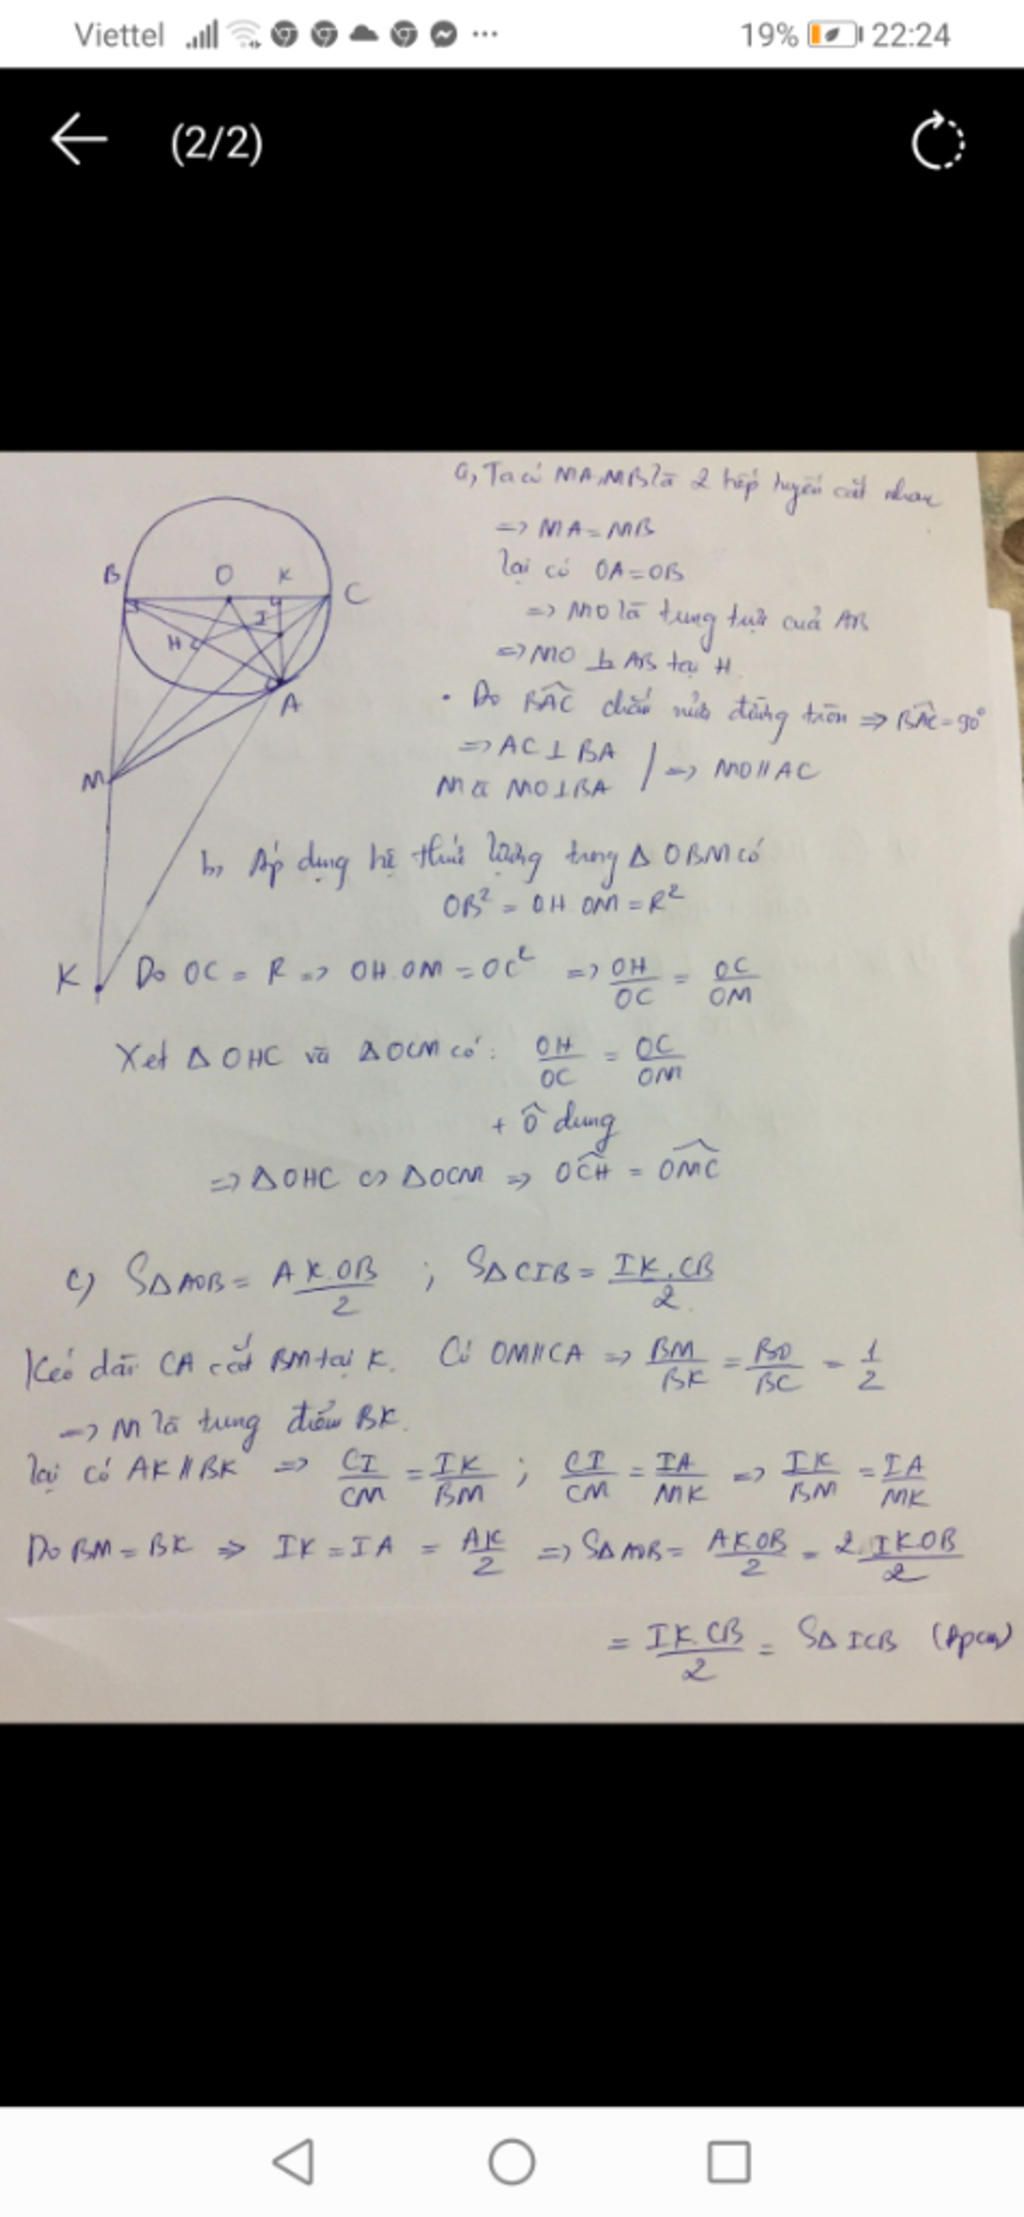 Viettel 19% 22:24
(2/2)
a, Ta có MA, MB là 2 tiếp tuyến cắt nhau
=> MA = MB
lại có OA = OB
=> MO là trung trực của AB
=> MO ⊥ AB tại H.
B O K C
I
H
A
M
K
· Do BAC chắn nửa đường tròn => BAC = 90°
=> AC ⊥ BA
Mà MO ⊥ BA
=> MO // AC
b, Áp dụng hệ thức lượng trong Δ OBM có
OB² = OH.OM = R²
Do OC = R => OH.OM = OC² => OH/OC = OC/OM
Xét Δ OHC và Δ OCM có: OH/OC = OC/OM
+ Ô chung
=> Δ OHC ∽ Δ OCM => OCH = OMC
c) SΔAOB = AK.OB/2 ; SΔCIB = IK.CB/2
Kéo dài CA cắt BM tại K. Có OM // CA => BM/BK = BO/BC = 1/2
=> M là trung điểm BK.
lại có AK // BK => CI/CM = IK/BM ; CI/CM = IA/MK => IK/BM = IA/MK
Do BM = BK => IK = IA = AK/2 => SΔAOB = AK.OB/2 = 2.IK.OB/2
= IK.CB/2 = SΔ ICB (đpcm)